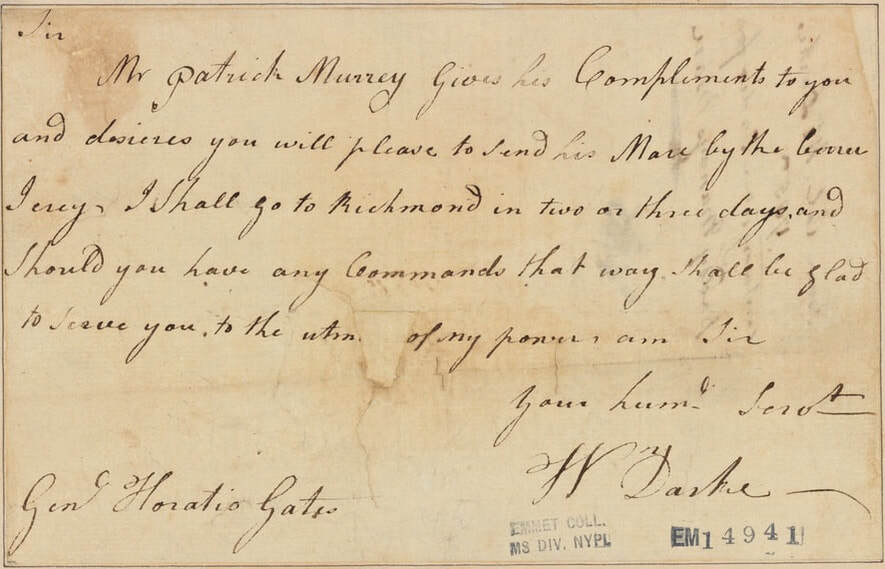 Sir
Mr Patrick Murrey Gives his Compliments to you
and desieres you will please to send his Mare by the
I Shall go to Richmond in two or three days, and
Should you have any Commands that way shall be glad
to serve you, to the utm of my power, am Sir
Your humd Servt
Wm Darke
Genl Horatio Gates
EMMET COLL.
MS DIV. NYPL
EM14941